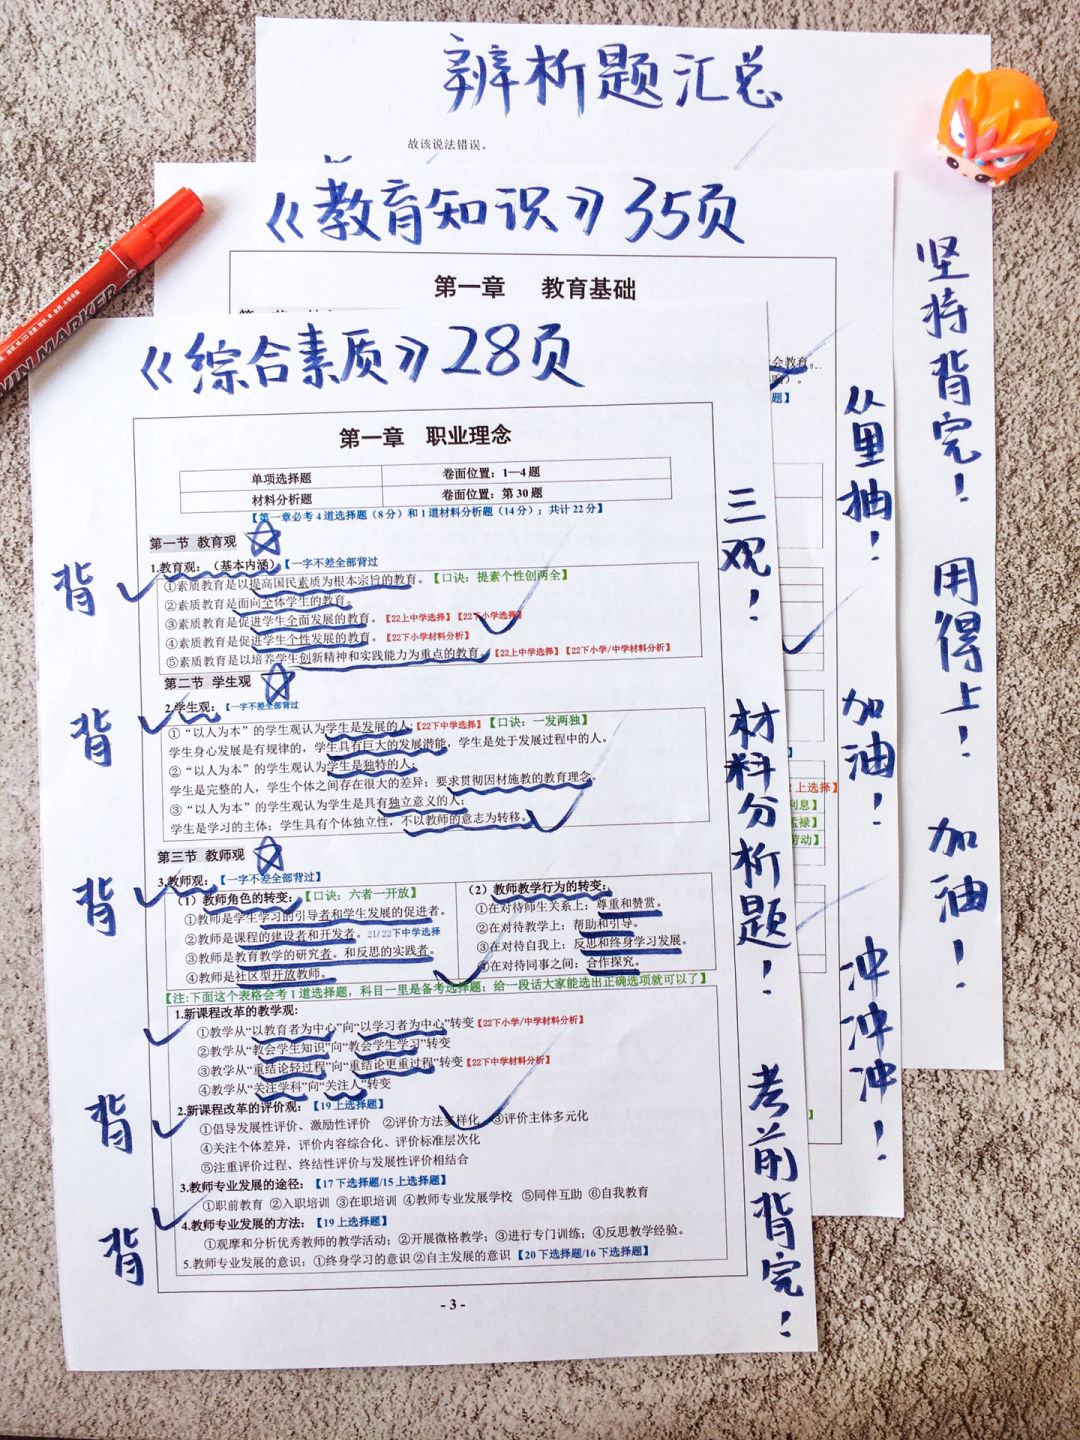 辨析题汇总
故该说法错误。
《教育知识》35页
第一章 教育基础
会教育。
题】
《综合素质》28页
第一章 职业理念
单项选择题 卷面位置：1—4题
材料分析题 卷面位置：第30题
【第一章必考4道选择题（8分）和1道材料分析题（14分）；共计22分】
第一节 教育观
背
1.教育观：（基本内涵）【一字不差全部背过
①素质教育是以提高国民素质为根本宗旨的教育。【口诀：提素个性创两全】
②素质教育是面向全体学生的教育。
③素质教育是促进学生全面发展的教育。【22上中学选择】【22下小学选择】
④素质教育是促进学生个性发展的教育。【22下小学材料分析】
⑤素质教育是以培养学生创新精神和实践能力为重点的教育。【22上中学选择】【22下小学/中学材料分析】
第二节 学生观
背
2.学生观：【一字不差全部背过
①“以人为本”的学生观认为学生是发展的人；【22下中学选择】【口诀：一发两独】
学生身心发展是有规律的，学生具有巨大的发展潜能，学生是处于发展过程中的人。
②“以人为本”的学生观认为学生是独特的人；
学生是完整的人，学生个体之间存在很大的差异；要求贯彻因材施教的教育理念。
③“以人为本”的学生观认为学生是具有独立意义的人；
学生是学习的主体；学生具有个体独立性，不以教师的意志为转移。
第三节 教师观
背
3.教师观：【一字不差全部背过】
（1）教师角色的转变：【口诀：六者一开放】
①教师是学生学习的引导者和学生发展的促进者。
②教师是课程的建设者和开发者。21/22下中学选择
③教师是教育教学的研究者。和反思的实践者。
④教师是社区型开放教师。
（2）教师教学行为的转变：
①在对待师生关系上：尊重和赞赏。
②在对待教学上：帮助和引导。
③在对待自我上：反思和终身学习发展。
④在对待同事之间：合作探究。
【注:下面这个表格会考1道选择题，科目一里是备考选择题；给一段话大家能选出正确选项就可以了】
1.新课程改革的教学观:
①教学从“以教育者为中心”向“以学习者为中心”转变【22下小学/中学材料分析】
②教学从“教会学生知识”向“教会学生学习”转变
③教学从“重结论轻过程”向“重结论更重过程”转变【22下中学材料分析】
④教学从“关注学科”向“关注人”转变
背
2.新课程改革的评价观：【19上选择题】
①倡导发展性评价、激励性评价 ②评价方法多样化 ③评价主体多元化
④关注个体差异，评价内容综合化、评价标准层次化
⑤注重评价过程、终结性评价与发展性评价相结合
3.教师专业发展的途径：【17下选择题/15上选择题】
①职前教育 ②入职培训 ③在职培训 ④教师专业发展学校 ⑤同伴互助 ⑥自我教育
背
4.教师专业发展的方法：【19上选择题】
①观摩和分析优秀教师的教学活动；②开展微格教学；③进行专门训练；④反思教学经验。
5.教师专业发展的意识：①终身学习的意识 ②自主发展的意识【20下选择题/16下选择题】
- 3 -
三观！
材料分析题！
考前背完！
上选择】
利息】
孟禄】
劳动】
从里抽！
加油！
冲冲冲！
坚持背完！
用得上！
加油！
MARKER